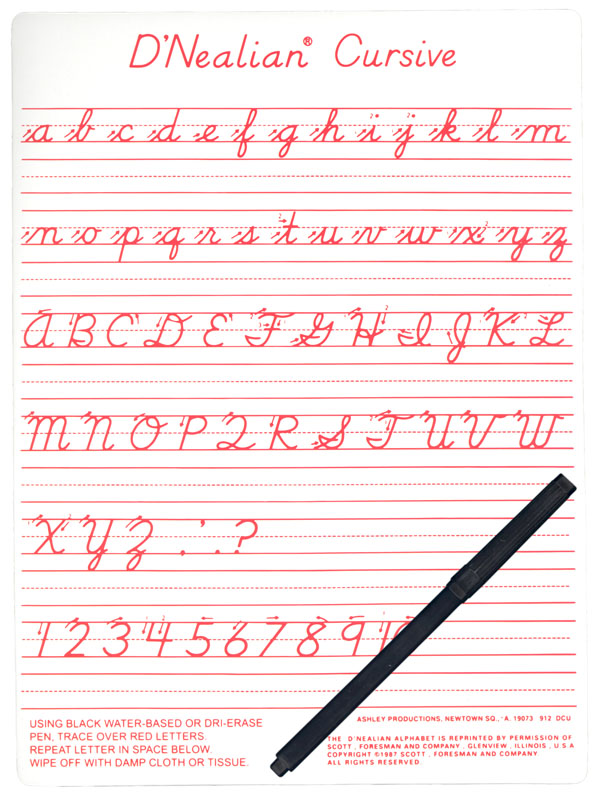 D'Nealian® Cursive
a b c d e f g h i j k l m
n o p q r s t u v w x y z
A B C D E F G H I J K L
M N O P Q R S T U V W
X Y Z . ' . ?
1 2 3 4 5 6 7 8 9 10
USING BLACK WATER-BASED OR DRI-ERASE
PEN, TRACE OVER RED LETTERS.
REPEAT LETTER IN SPACE BELOW.
WIPE OFF WITH DAMP CLOTH OR TISSUE.
ASHLEY PRODUCTIONS, NEWTOWN SQ., 'A. 19073 912 DCU
THE D'NEALIAN ALPHABET IS REPRINTED BY PERMISSION OF
SCOTT, FORESMAN AND COMPANY, GLENVIEW, ILLINOIS, U.S.A
COPYRIGHT ©1987 SCOTT, FORESMAN AND COMPANY
ALL RIGHTS RESERVED.